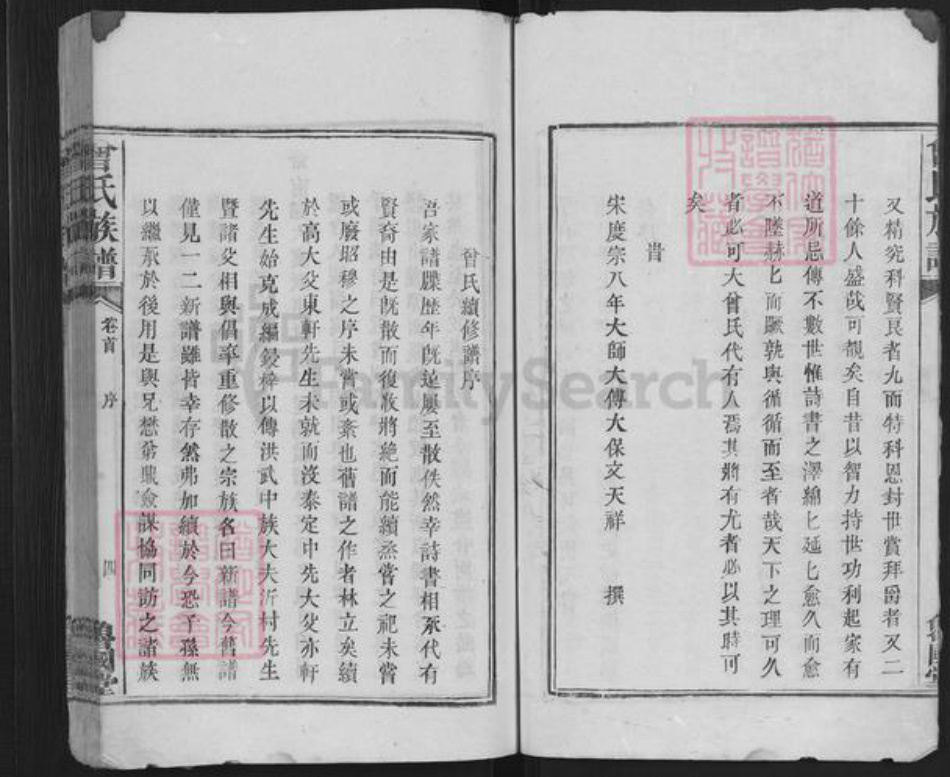 又精究科賢良者九而特科恩封世賞拜爵者又二
十餘人盛哉可覩矣自昔以智力持世功利起家有
道所忌傳不數世惟詩書之澤綿匕延匕愈久而愈
不墜赫匕而蹶孰與循循而至者哉天下之理可久
者必可大曾氏代有人焉其將有尤者必以其時可
矣
旹
宋度宗八年大師大傳大保文天祥 撰
曾氏續修譜序
吾家譜牒歷年既遠屢至散佚然幸詩書相承代有
賢裔由是既散而復收將絶而能續烝嘗之祀未嘗
或廢昭穆之序未嘗或紊也舊譜之作者林立矣續
於高大父東軒先生未就而沒泰定中先大父亦軒
先生始克成編鋟梓以傳洪武中族大夫沂村先生
暨諸父相與倡率重修散之宗族名曰新譜今舊譜
僅見一二新譜雖皆幸存然弗加續於今恐子孫無
以繼承於後用是與兄懋弟 僉謀協同訪之諸族
曾氏族譜 卷首 序 四
FamilySearch